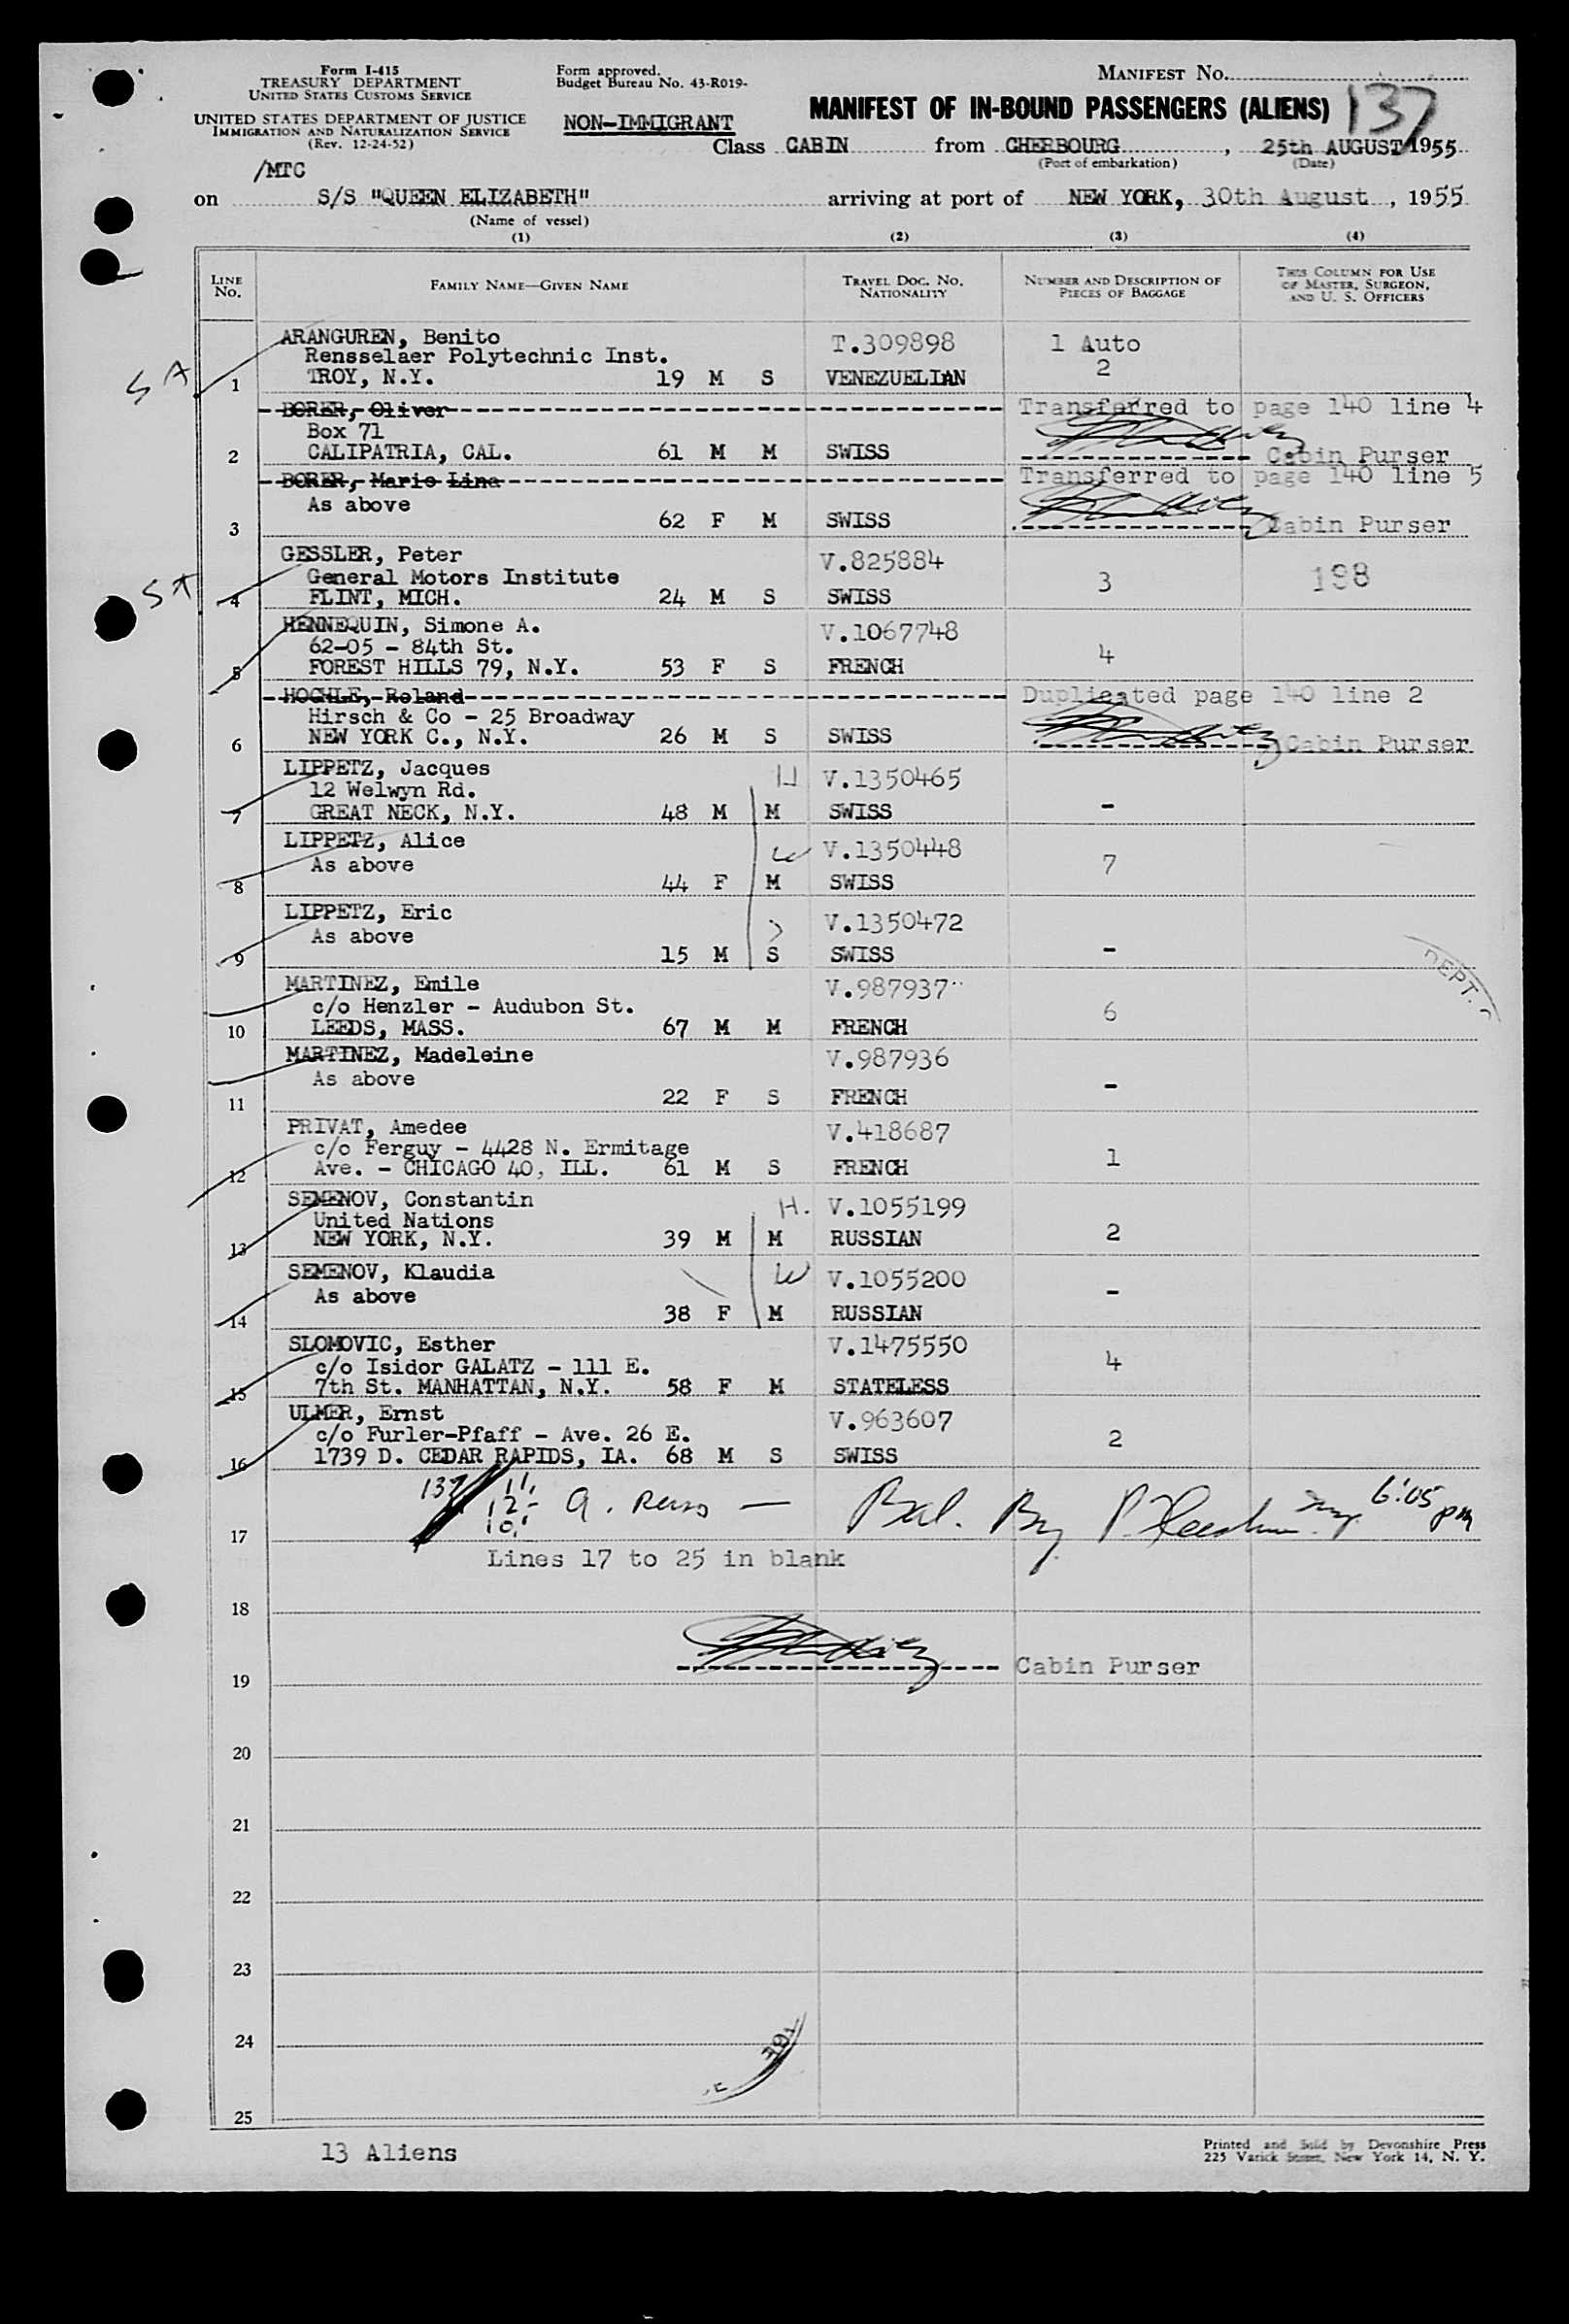 Form I-415
TREASURY DEPARTMENT
UNITED STATES CUSTOMS SERVICE
UNITED STATES DEPARTMENT OF JUSTICE
IMMIGRATION AND NATURALIZATION SERVICE
(Rev. 12-24-52)
Form approved.
Budget Bureau No. 43-R019-
NON-IMMIGRANT
MANIFEST NO.
MANIFEST OF IN-BOUND PASSENGERS (ALIENS) 137
Class CABIN from CHERBOURG, 25th AUGUST 1955
(Port of embarkation) (Date)
/MTC
on S/S "QUEEN ELIZABETH" arriving at port of NEW YORK, 30th August, 1955
(Name of vessel)
(1) (2) (3) (4)
LINE NO.
FAMILY NAME—GIVEN NAME
TRAVEL DOC. NO. NATIONALITY
NUMBER AND DESCRIPTION OF PIECES OF BAGGAGE
THIS COLUMN FOR USE OF MASTER, SURGEON, AND U. S. OFFICERS
ARANGUREN, Benito T.309898 1 Auto
Rensselaer Polytechnic Inst. 2
SA 1 TROY, N.Y. 19 M S VENEZUELIAN
BORER, Oliver Transferred to page 140 line 4
Box 71
2 CALIPATRIA, CAL. 61 M M SWISS Cabin Purser
BORER, Marie Lina Transferred to page 140 line 5
As above
3 62 F M SWISS Cabin Purser
GESSLER, Peter V.825884
General Motors Institute 3 198
SA 4 FLINT, MICH. 24 M S SWISS
HENNEQUIN, Simone A. V.1067748
62-05 - 84th St. 4
5 FOREST HILLS 79, N.Y. 53 F S FRENCH
HOCHLE, Roland Duplicated page 140 line 2
Hirsch & Co - 25 Broadway
6 NEW YORK C., N.Y. 26 M S SWISS Cabin Purser
LIPPETZ, Jacques H V.1350465
12 Welwyn Rd. -
7 GREAT NECK, N.Y. 48 M M SWISS
LIPPETZ, Alice W V.1350448
As above 7
8 44 F M SWISS
LIPPETZ, Eric V.1350472
As above -
9 15 M S SWISS
DEPT.
MARTINEZ, Emile V.987937
c/o Henzler - Audubon St. 6
10 LEEDS, MASS. 67 M M FRENCH
MARTINEZ, Madeleine V.987936
As above -
11 22 F S FRENCH
PRIVAT, Amedee V.418687
c/o Ferguy - 4428 N. Ermitage 1
12 Ave. - CHICAGO 40, ILL. 61 M S FRENCH
SEMENOV, Constantin H. V.1055199
United Nations 2
13 NEW YORK, N.Y. 39 M M RUSSIAN
SEMENOV, Klaudia W V.1055200
As above -
14 38 F M RUSSIAN
SLOMOVIC, Esther V.1475550
c/o Isidor GALATZ - 111 E. 4
15 7th St. MANHATTAN, N.Y. 58 F M STATELESS
ULMER, Ernst V.963607
c/o Furler-Pfaff - Ave. 26 E. 2
16 1739 D. CEDAR RAPIDS, IA. 68 M S SWISS
137 11, 12- 10, Bal. By 6:05 pm
17
Lines 17 to 25 in blank
18
Cabin Purser
19
20
21
22
23
24
25
13 Aliens
Printed and Sold by Devonshire Press
225 Varick Street, New York 14, N. Y.